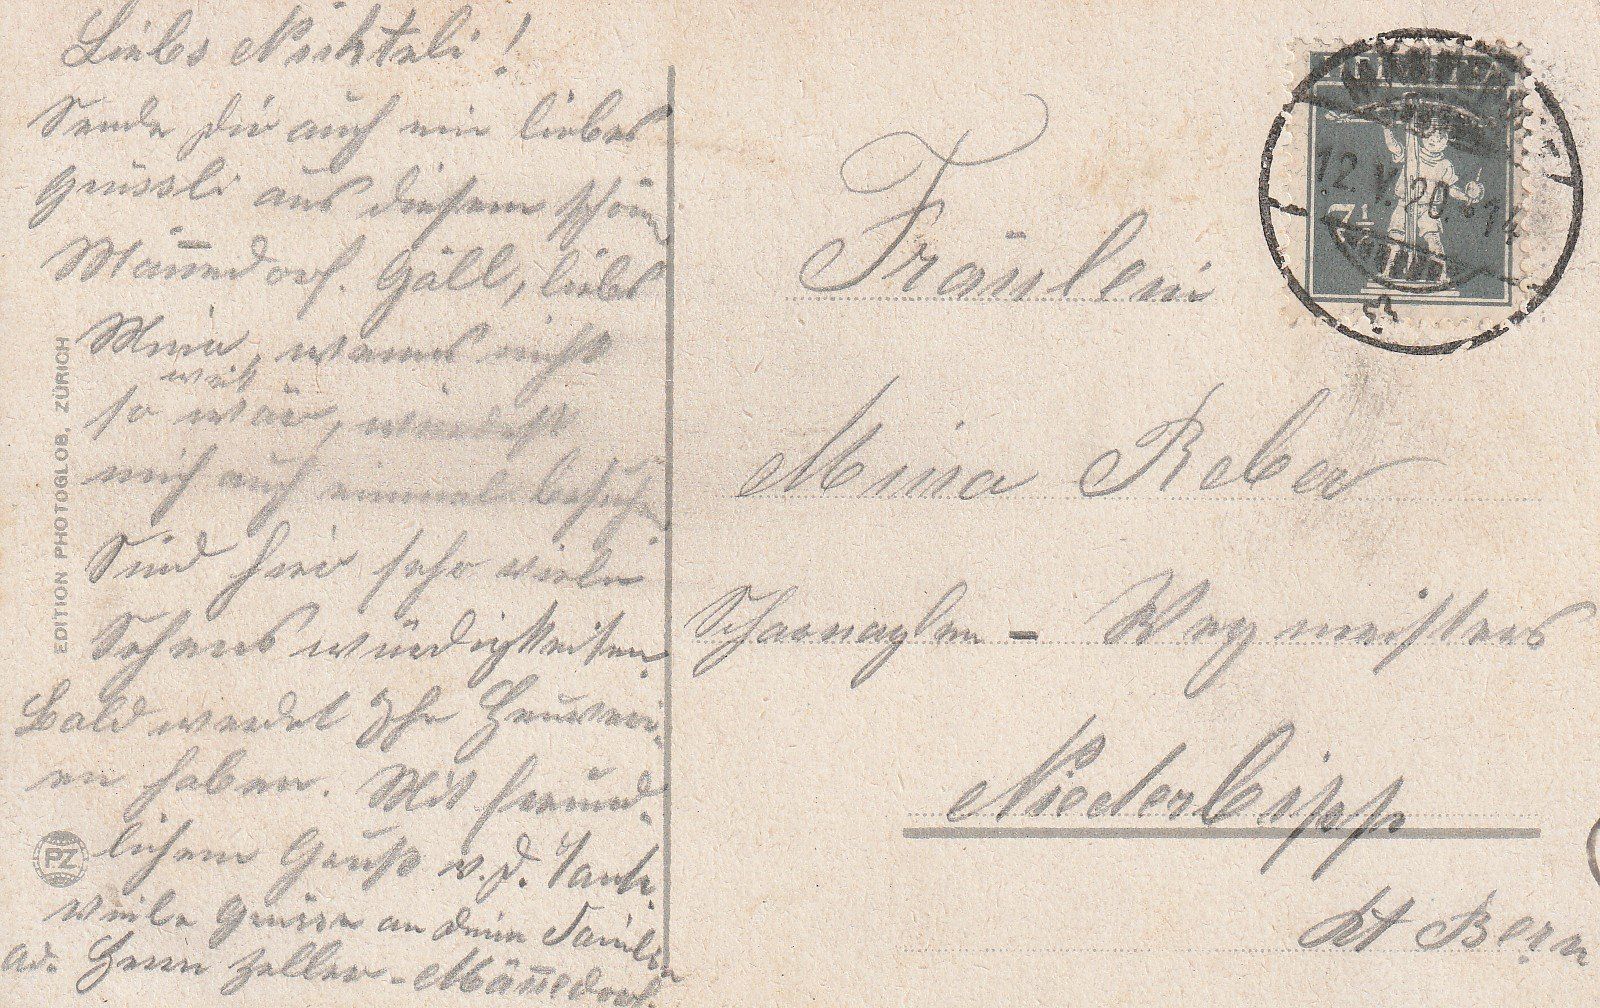 Liebs Nichteli!
Sende dir auch ein liebes
Grüssli aus diesem schönen
Männedorf. Gäll, liebs
Mina, wenns nicht
so weit wär, würdest
mich auch einmal besuchen
Sind hier sehr viele
Sehenswürdigkeiten.
Bald werdet Ihr Heuferi-
en haben. Mit freund-
lichem Gruß v. d. Tante
Viele Grüsse an deine Familie
Ad. Herrn Zeller-Männedorf.
EDITION PHOTOGLOB, ZÜRICH
PZ
HELVETIA
7½
12.V.20. 14
Fräulein
Mina Reber
Scharnaglen - Wegmeisters
Niederbipp
Kt Bern